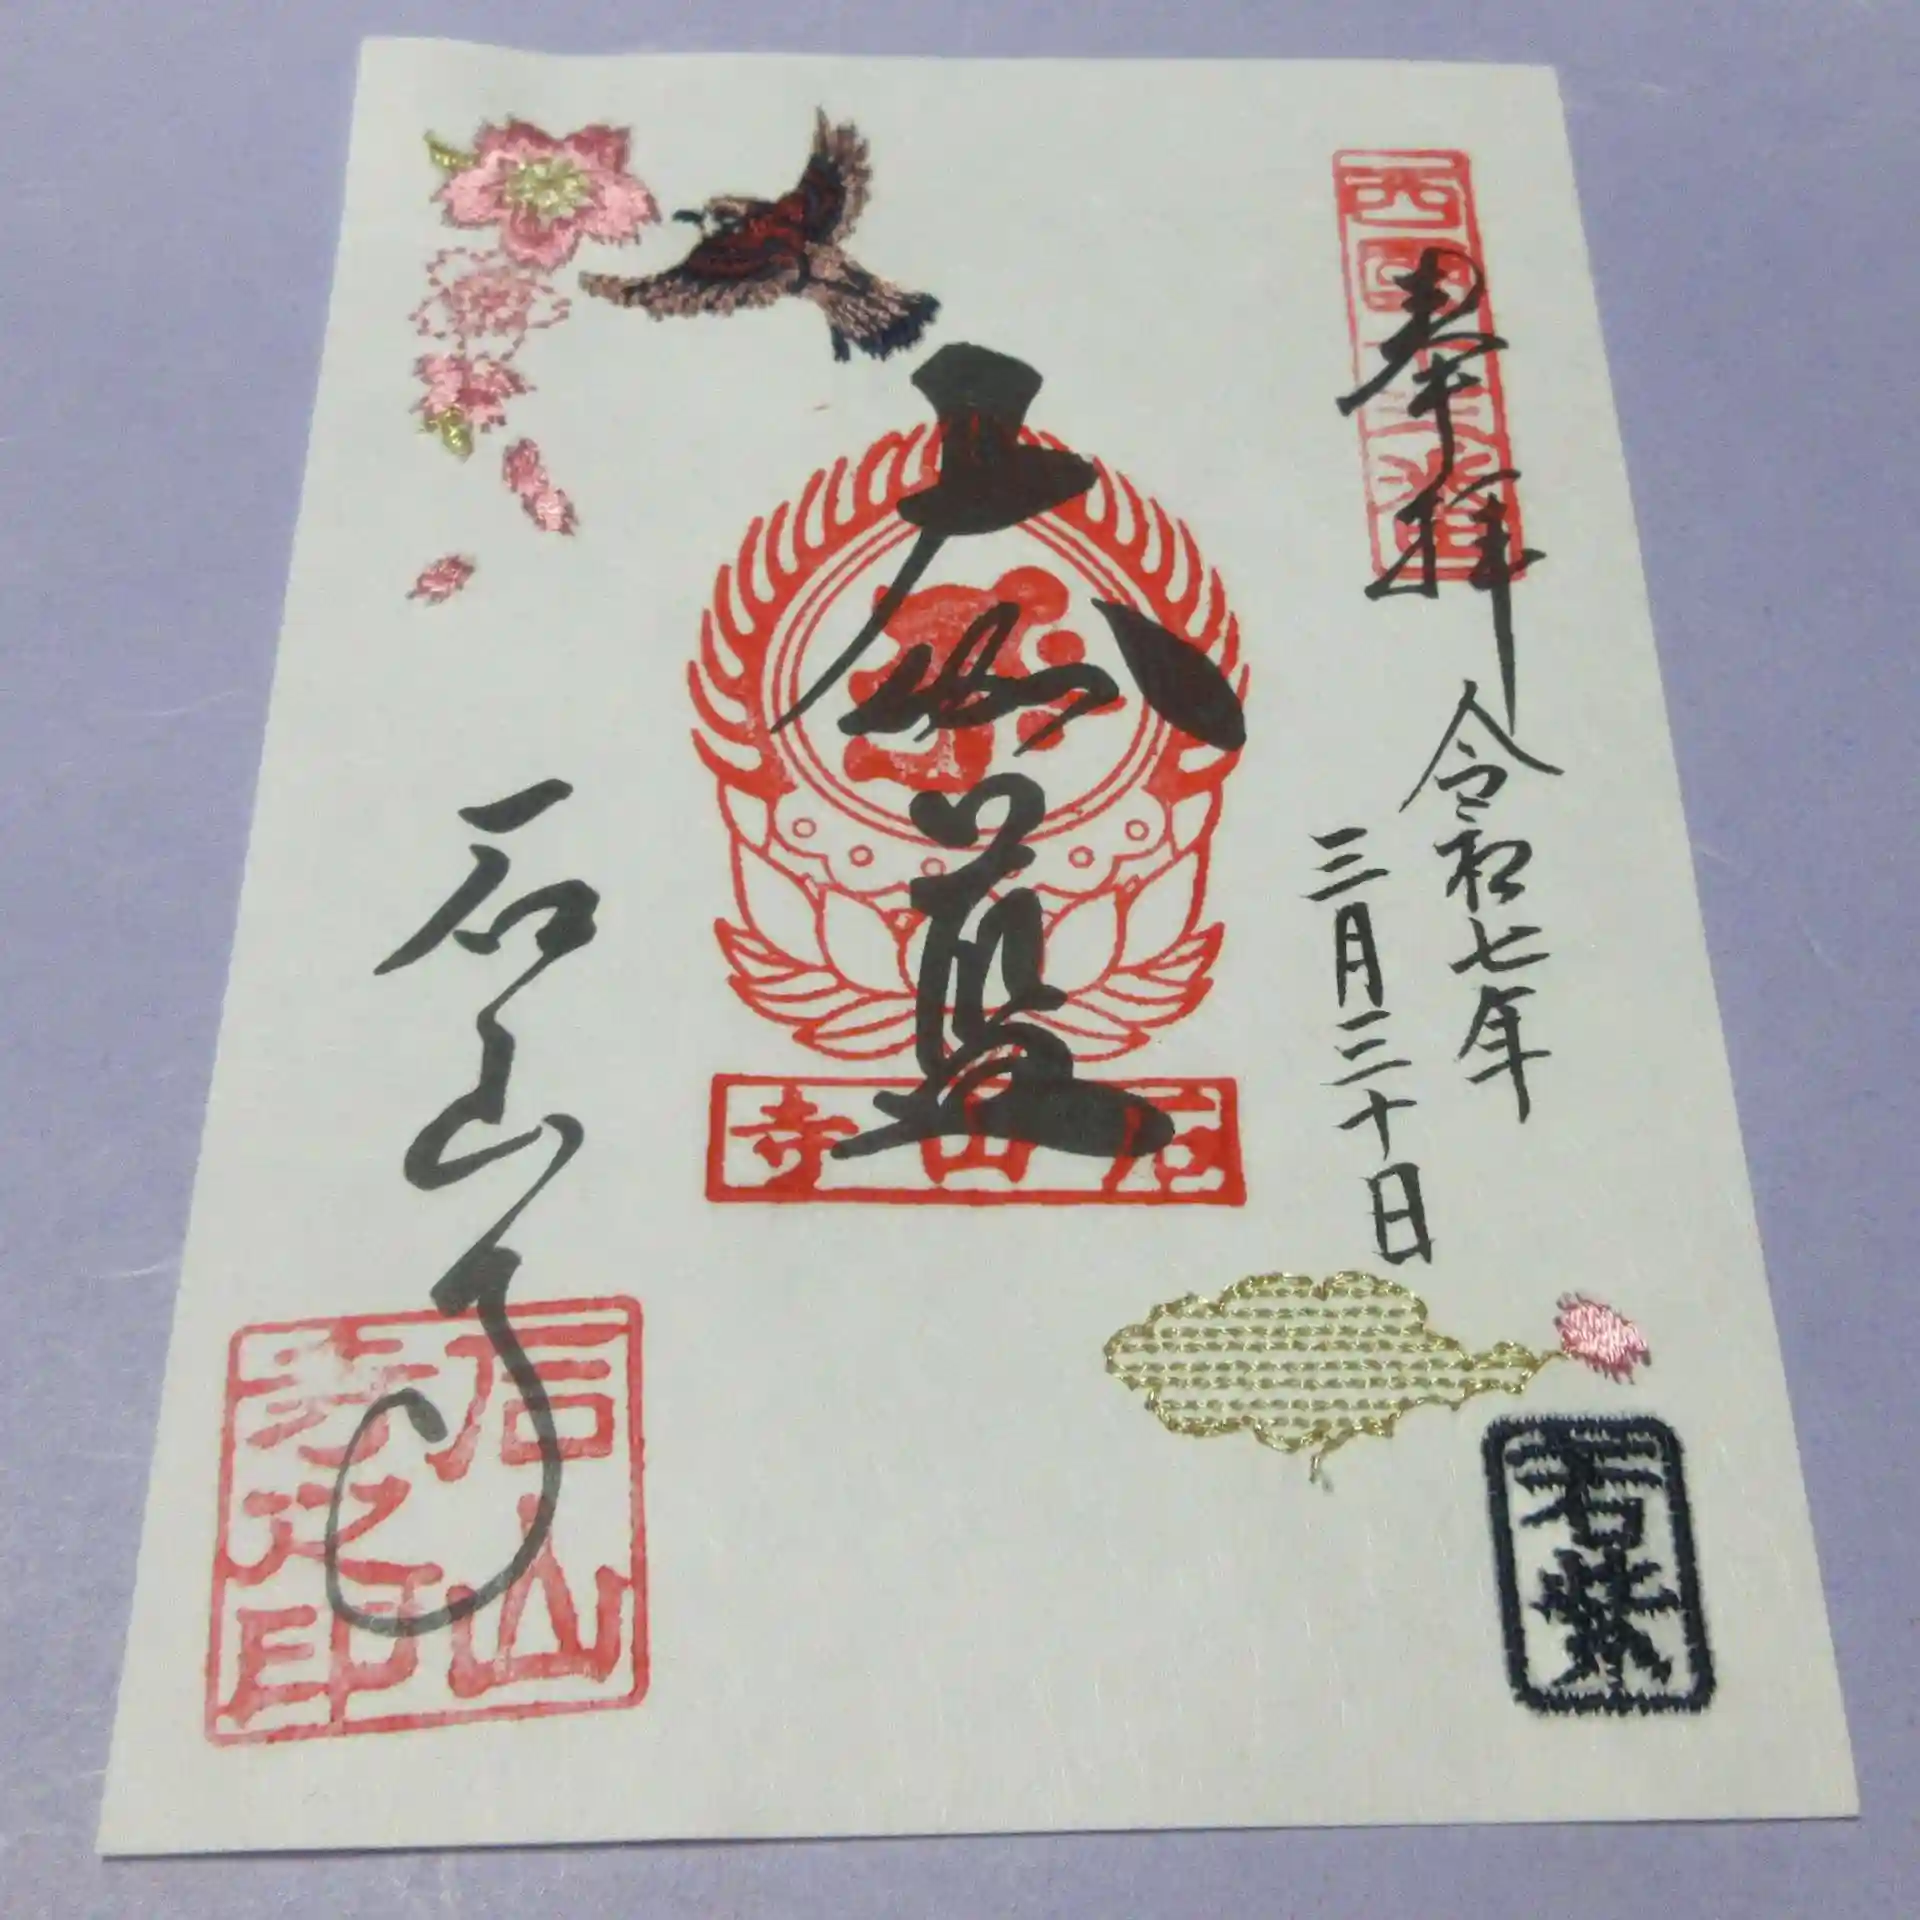 奉拝
西国十三番
令和七年
三月三十日
大悲殿
石山寺
石山寺
石山寺之印
若紫